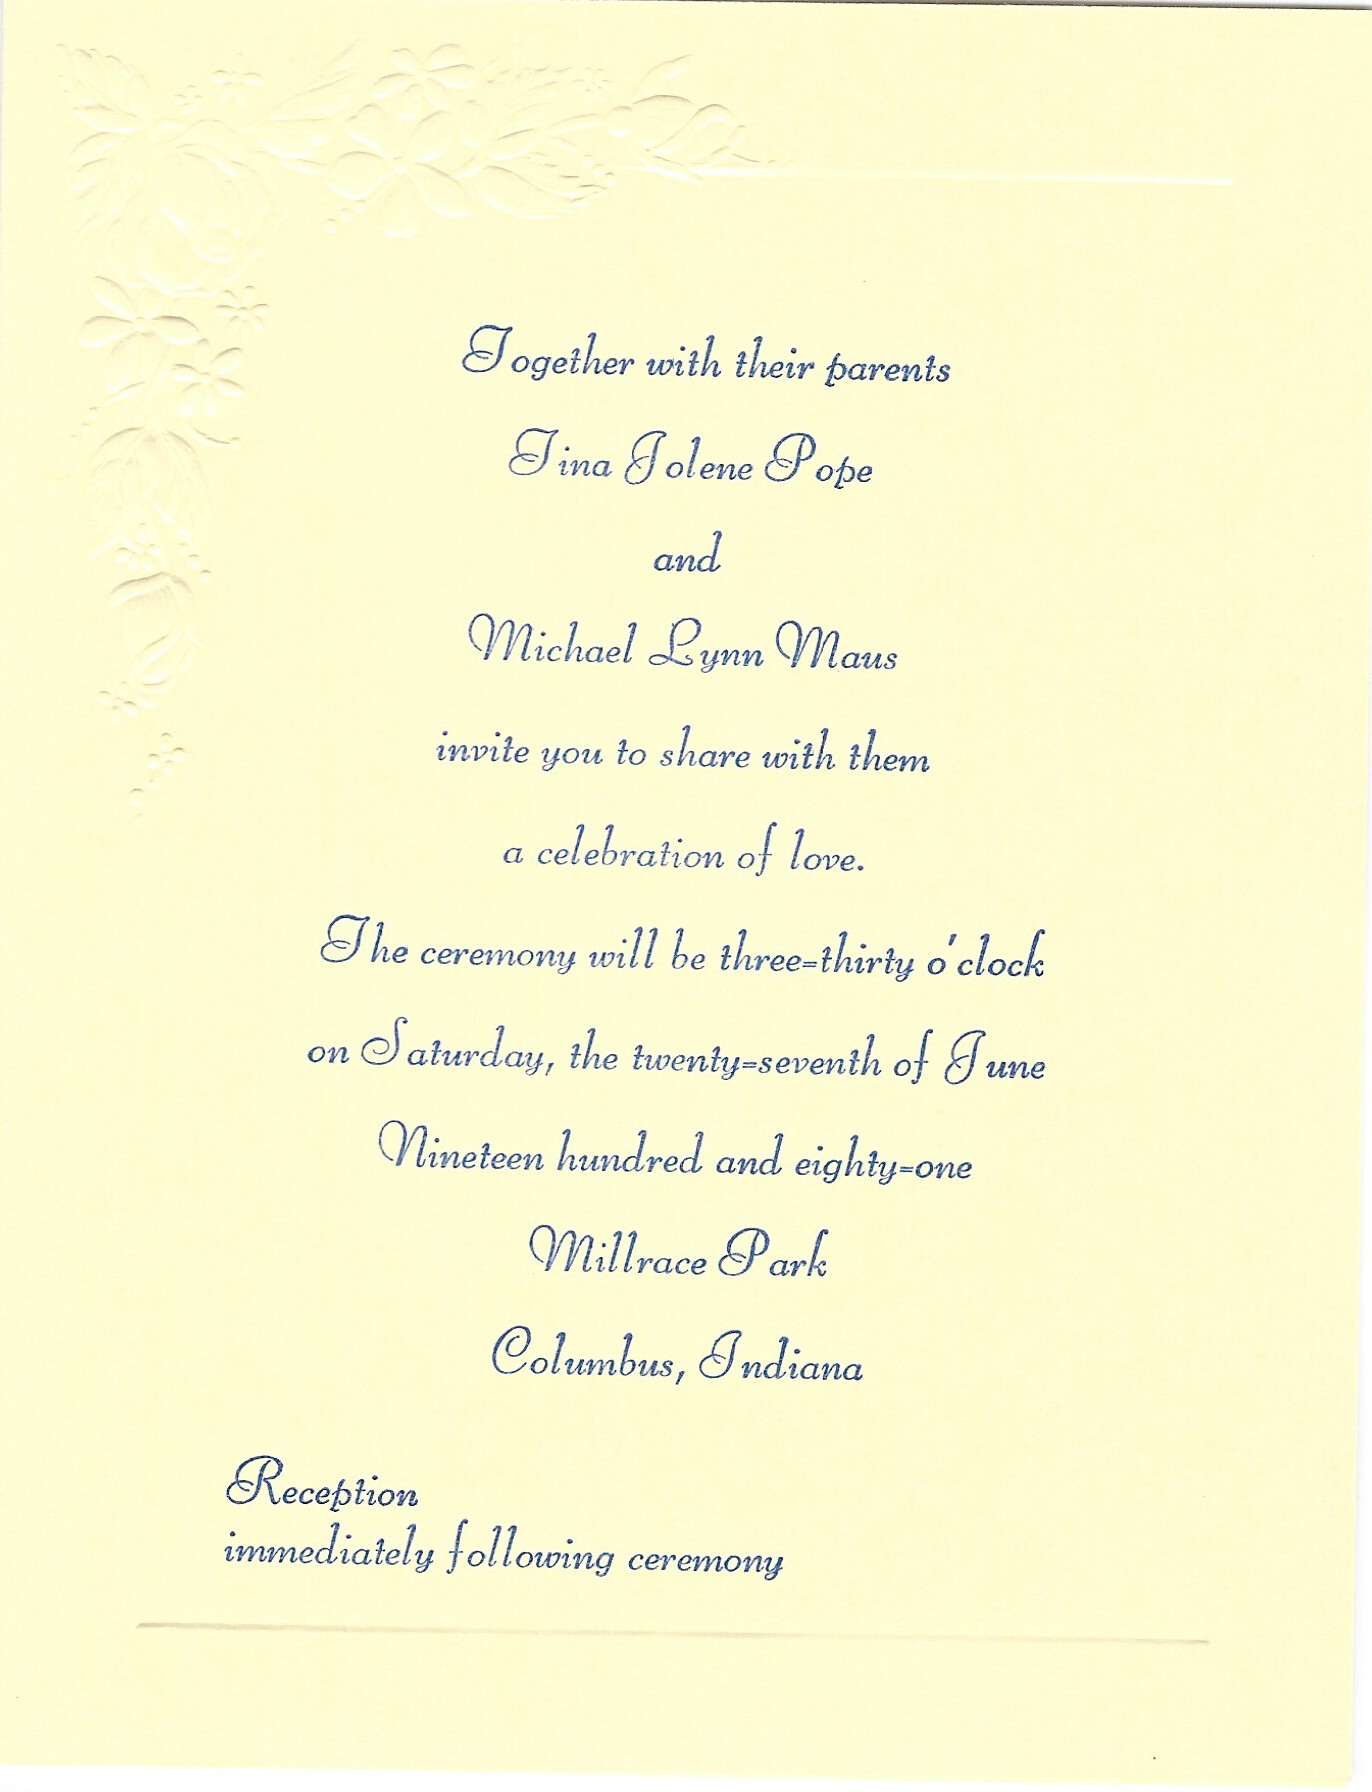 Together with their parents
Tina Jolene Pope
and
Michael Lynn Maus
invite you to share with them
a celebration of love.
The ceremony will be three=thirty o'clock
on Saturday, the twenty=seventh of June
Nineteen hundred and eighty=one
Millrace Park
Columbus, Indiana
Reception
immediately following ceremony